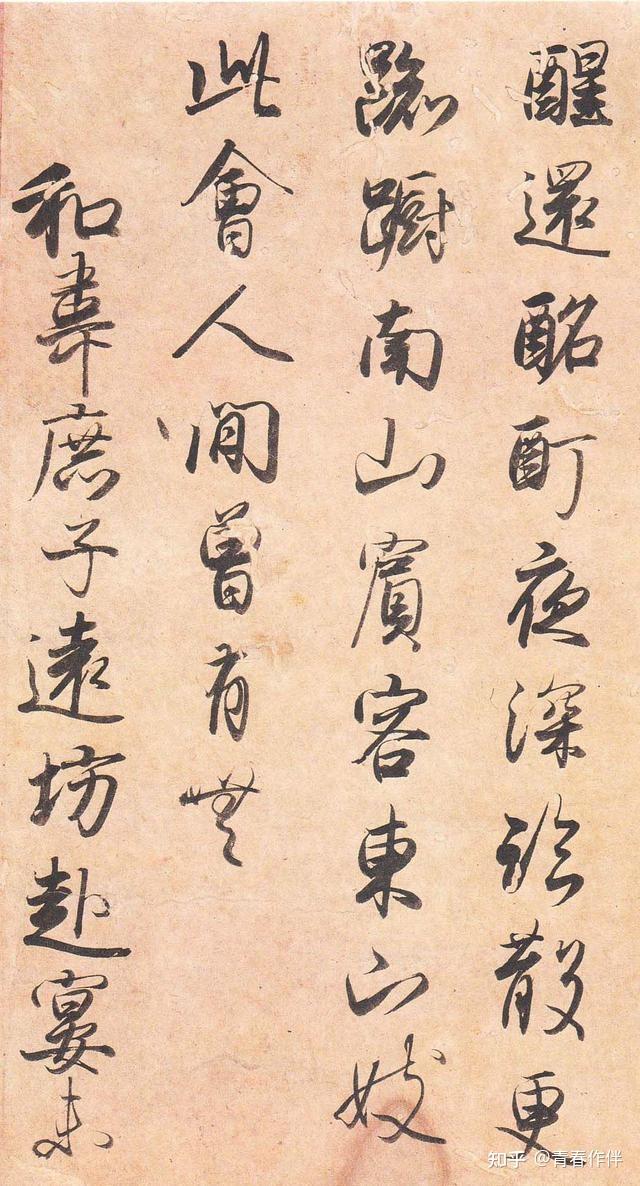 醒還酩酊夜深臨散更
踟蹰南山賓客東山妓
此會人間曾有無
和韋庶子遠坊赴宴未
知乎 @青春作伴